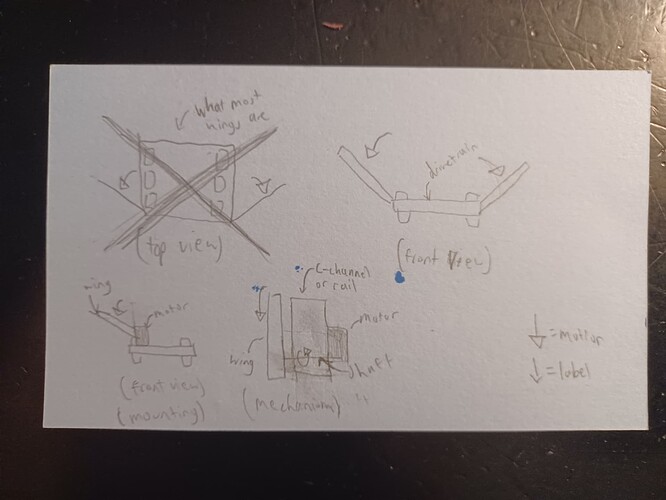 What most
wings are
(top view)
drivetrain
(front view)
wing
motor
(front view)
(mounting)
C-channel
or rail
motor
wing
shaft
(mechanism)
= motion
= label